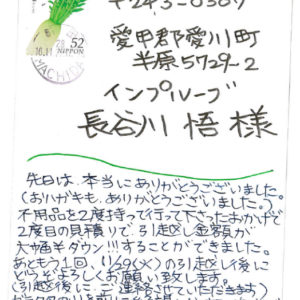 〒243-0307
愛甲郡愛川町
半原5729-2
インプルーブ
長谷川 悟 様
52
NIPPON
MACHIDA
先日は、本当にありがとうございました。
(おハガキも、ありがとうございました。)
不用品を2度持って行って下さったおかげで
2度目の見積りで、引越し金額が
大幅半ダウン!!!することができました。
あともう1回、11/29(火)の引越し後に
どうぞよろしくお願い致します。
(引越後に、ご連絡させていただきます)